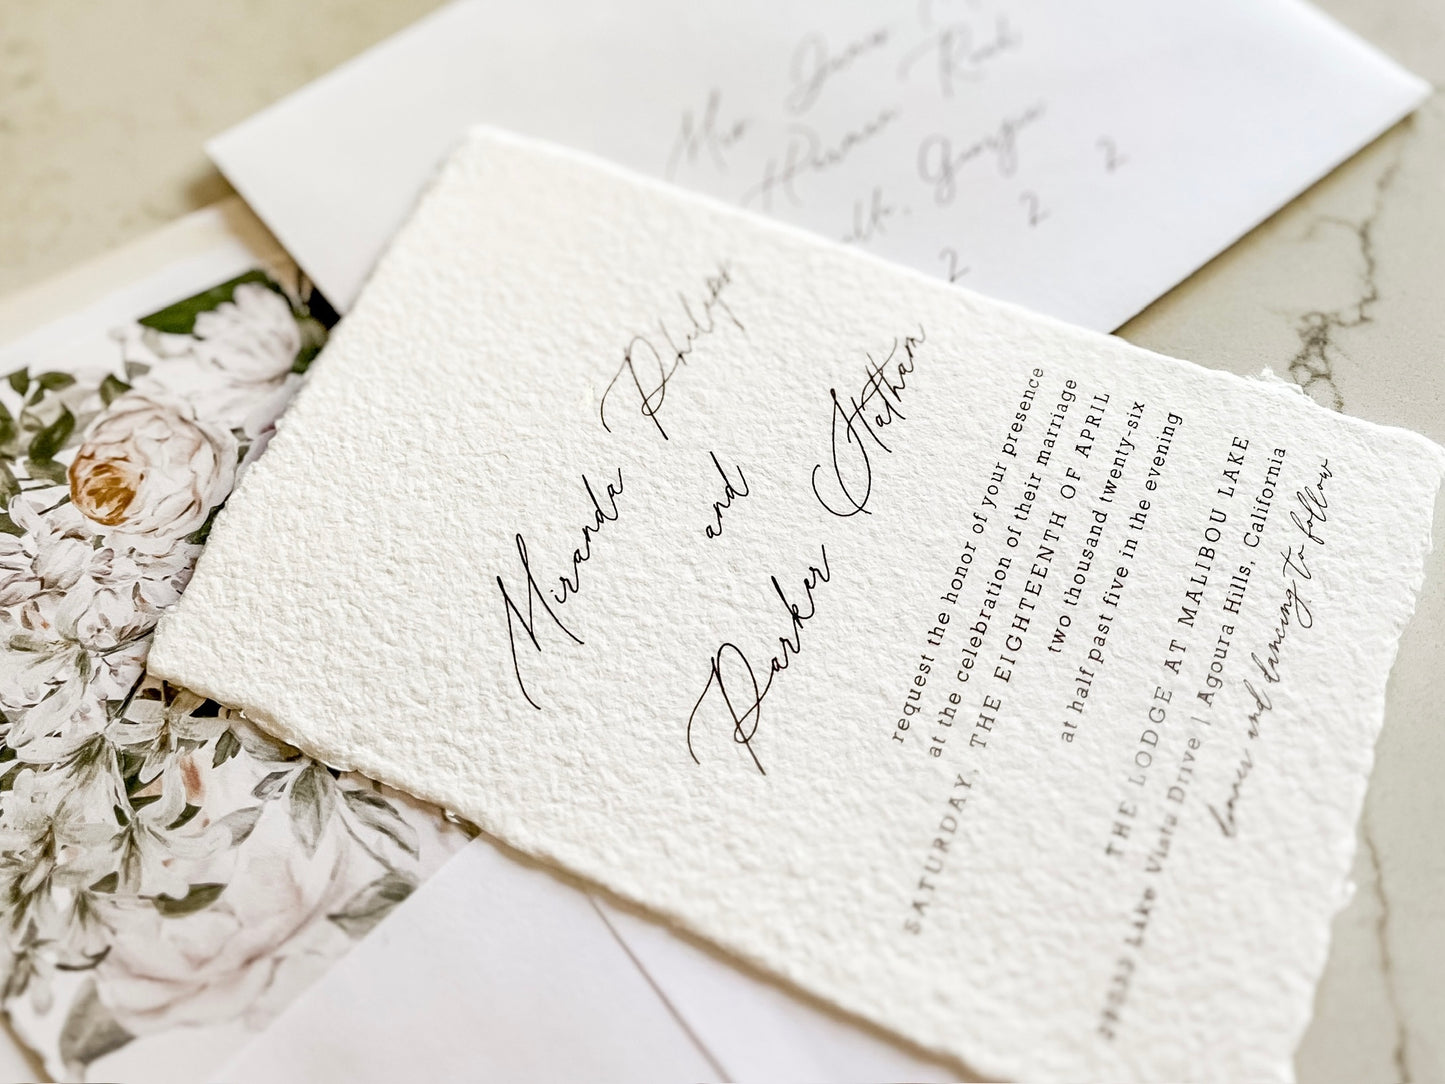 Miranda Philips
and
Parker Hatham
request the honor of your presence
at the celebration of their marriage
SATURDAY, THE EIGHTEENTH OF APRIL
two thousand twenty-six
at half past five in the evening
THE LODGE AT MALIBOU LAKE
Lake Vista Drive | Agoura Hills, California
dinner and dancing to follow
Georgia
2 2 2